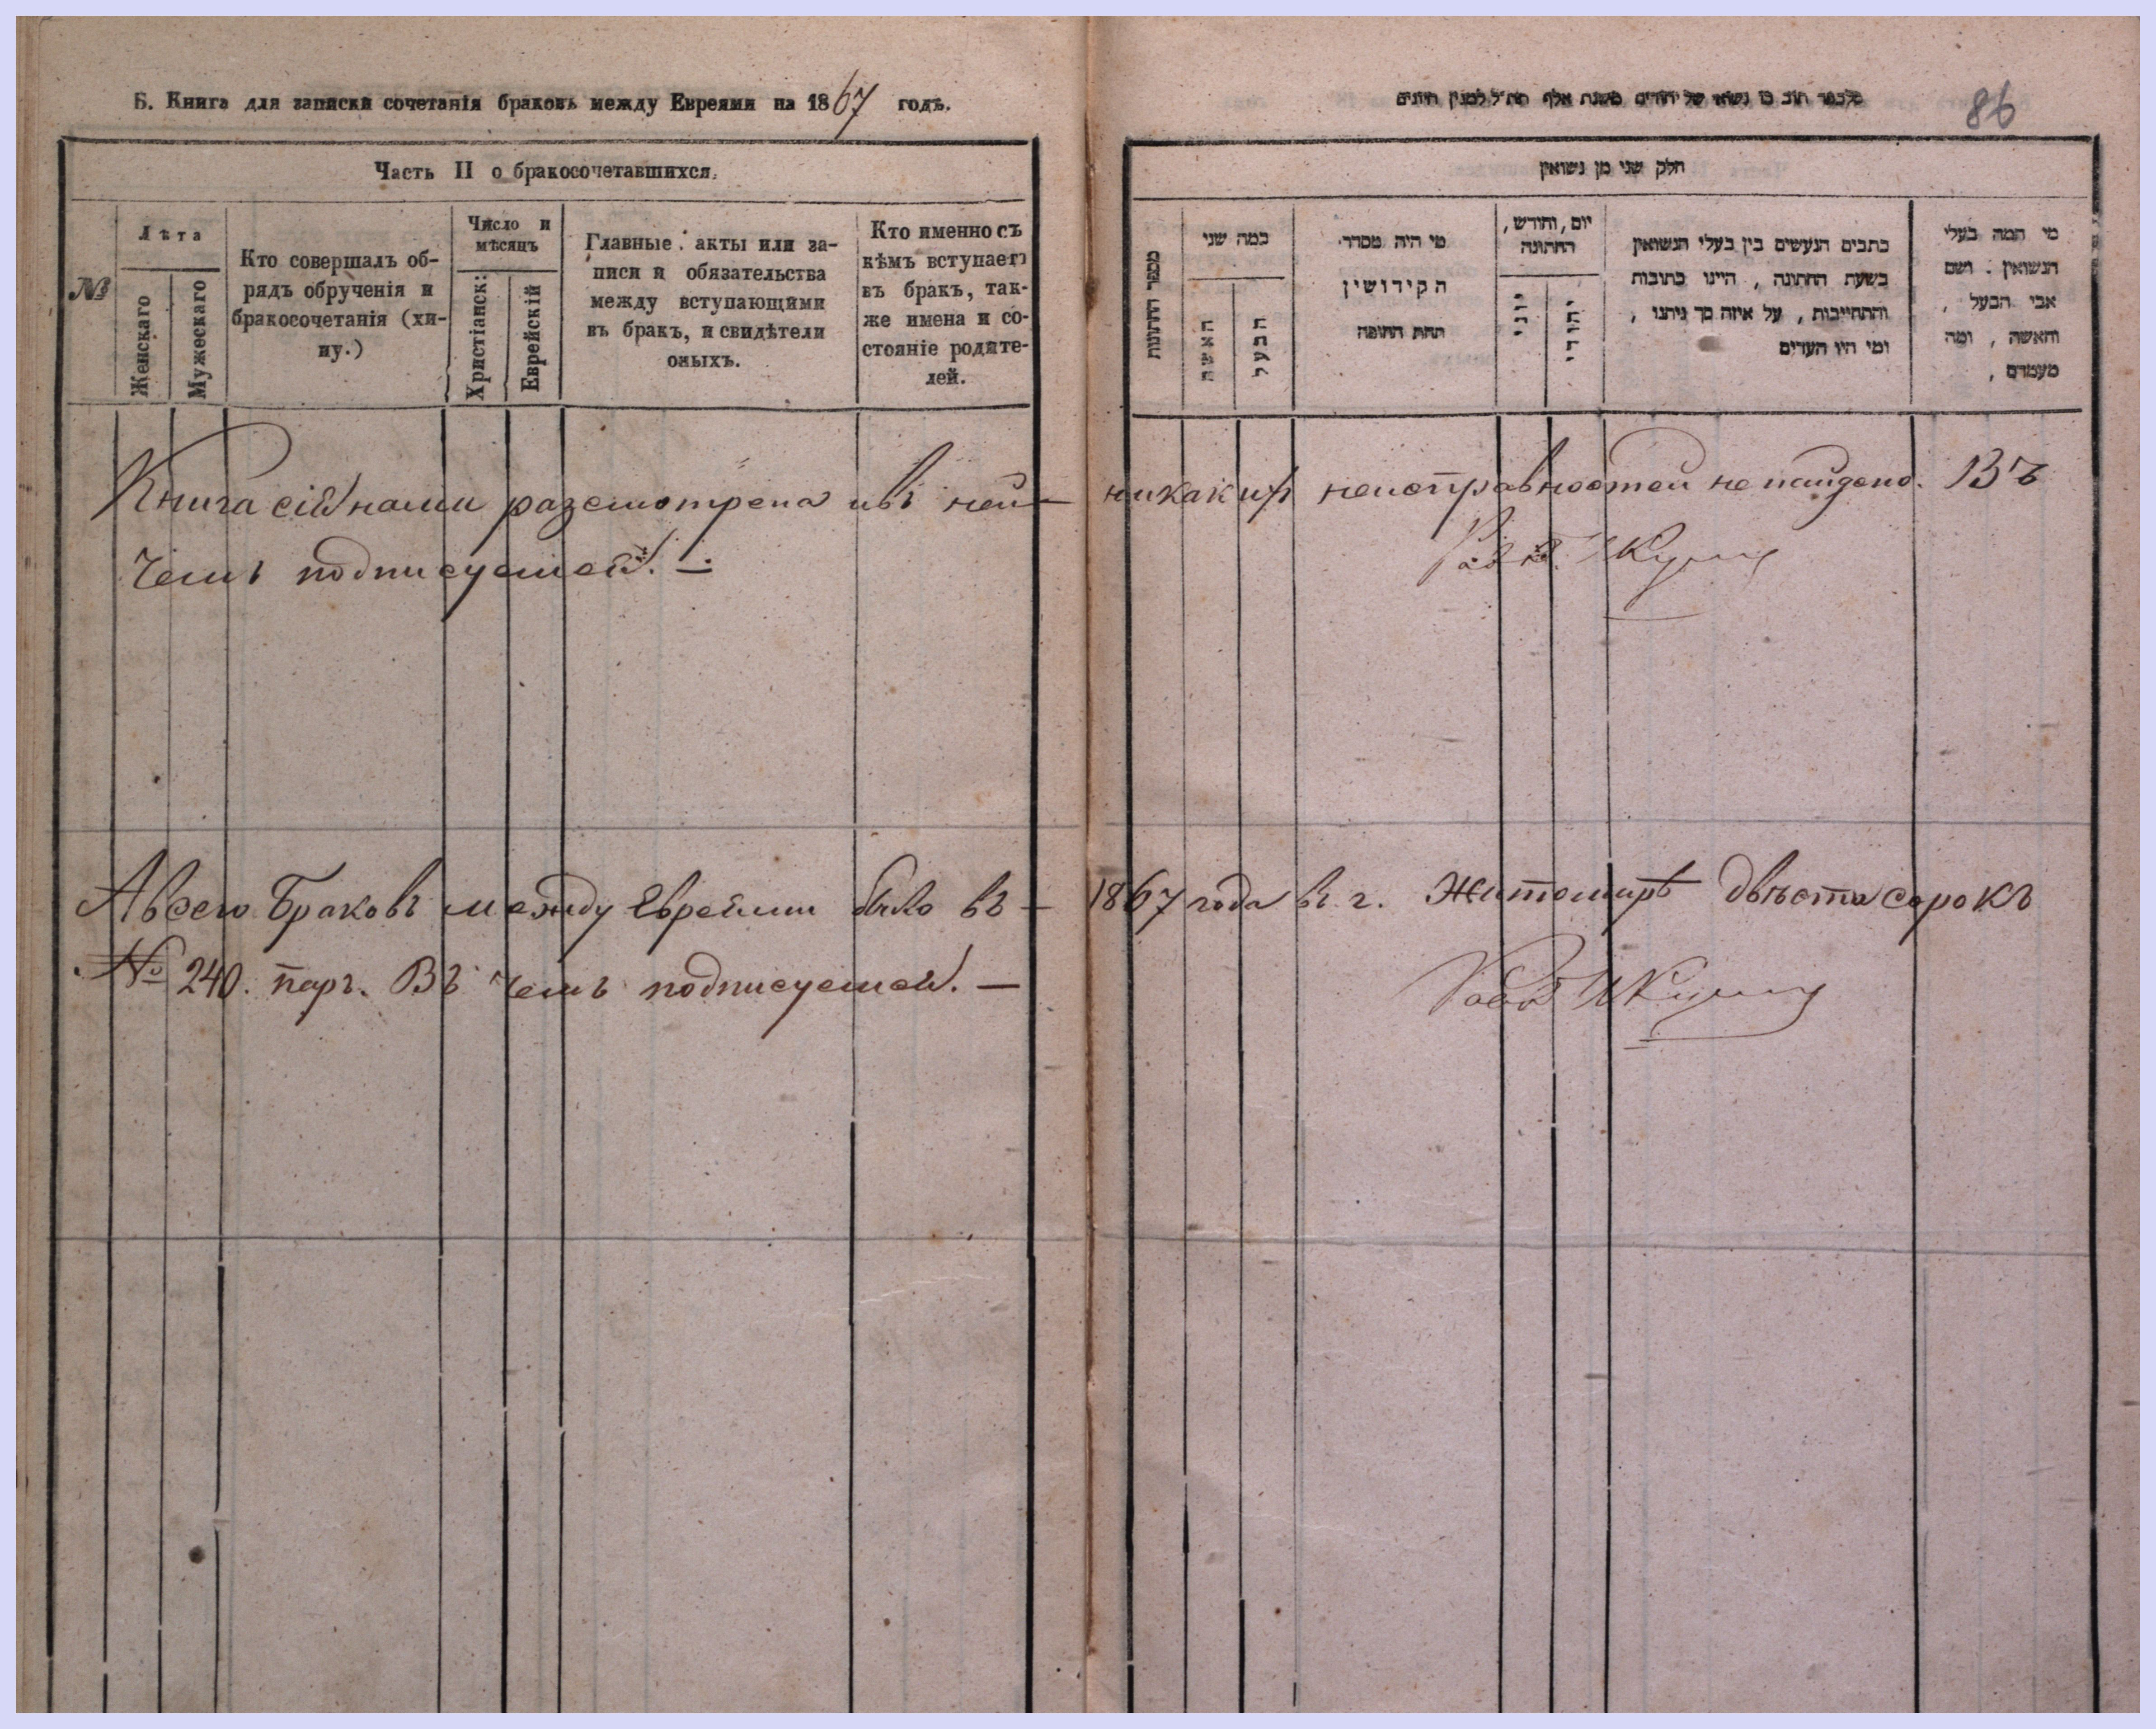 Б. Книга для записки сочетанія браковъ между Евреями на 1867 годъ.
Часть II о бракосочетавшихся.
№
Лѣта
Женскаго
Мужескаго
Кто совершалъ об-
рядъ обрученія и
бракосочетанія (хи-
пу.)
Число и
мѣсяцъ
Христіанск:
Еврейскій
Главные акты или за-
писи и обязательства
между вступающими
въ бракъ, и свидѣтели
оныхъ.
Кто именно съ
кѣмъ вступаетъ
въ бракъ, так-
же имена и со-
стояніе родите-
лей.
86
חלק שני מן נשואין
מספר החתונות
כמה שני
האשה
הבעל
מי היה מסדר
הקידושין
תחת החופה
יום, וחודש,
החתונה
יוני
יהודי
כתבים הנעשים בין בעלי הנשואין
בשעת החתונה, היינו כתובות
והתחייבות, על איזה סך ניתנו,
ומי היו העדים
מי המה בעלי
הנשואין. ושם
אבי הבעל,
והאשה, ומה
מעמדם,
Книга сія нами разсмотрена и въ ней — никакихъ неисправностей не найдено. Въ
чемъ подписуемся. —
А всего Браковъ между Евреями было въ — 1867 года въ г. Житомирѣ двѣста сорокъ
№ 240. паръ. Въ чемъ подписуемся. —